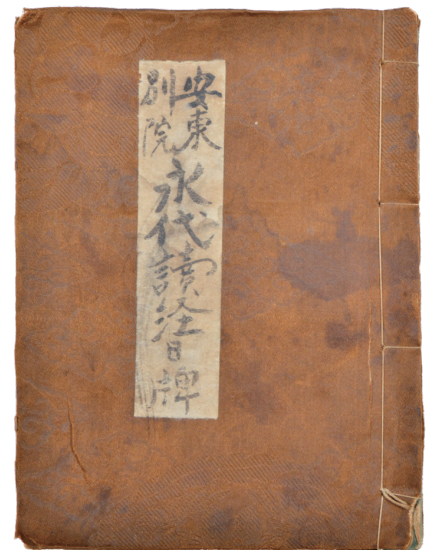 安東
別院
永代讀経日牌